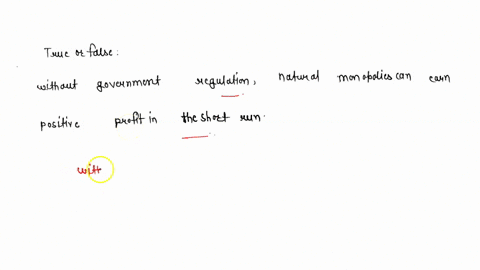 True or false:
without government regulation, natural monopolies can earn
positive profit in the short run.
with